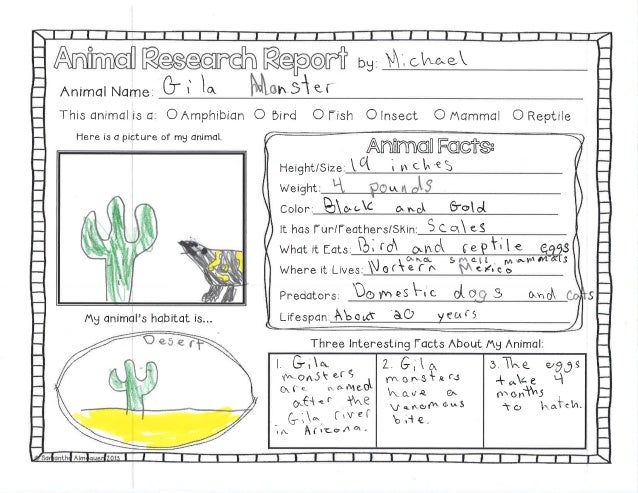 Animal Research Report by: Michael
Animal Name: Gila Monster
This animal is a: O Amphibian O Bird O Fish O Insect O Mammal O Reptile
Here is a picture of my animal.
Animal Facts:
Height/Size: 19 inches
Weight: 4 pounds
Color: Black and Gold
It has Fur/Feathers/Skin: Scales
What it Eats: Bird and reptile eggs
and small mammals
Where it Lives: Nortern Mexico
Predators: Domestic dogs and cats
Lifespan: About 20 years
My animal's habitat is...
Desert
Three Interesting Facts About My Animal:
1. Gila
monsters
are named
after the
Gila river
in Arizona.
2. Gila
monsters
have a
venomous
bite.
3. The eggs
take 4
months
to hatch.
© Samantha 2013